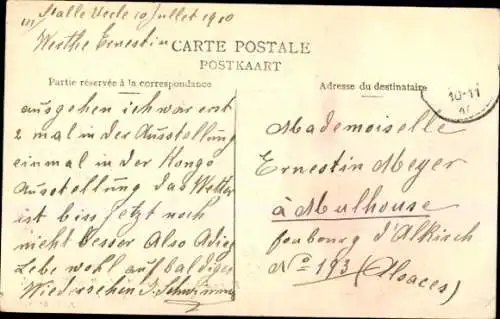 Halle Uccle 10 Juillet 1910
Werthe Ernestin
CARTE POSTALE
POSTKAART
Partie réservée à la correspondance
Adresse du destinataire
ausgehen ich war erst
2 mal in der Ausstellung
einmal in der Kongo
Ausstellung das Wetter
ist biss Jetzt noch
nicht Besser Also Adie
Lebe wohl auf baldiges
Wiedersehin
10-11
Mademoiselle
Ernestin Meyer
à Mulhouse
foubourg d'Alkirsch
No 193 (Alsaces)